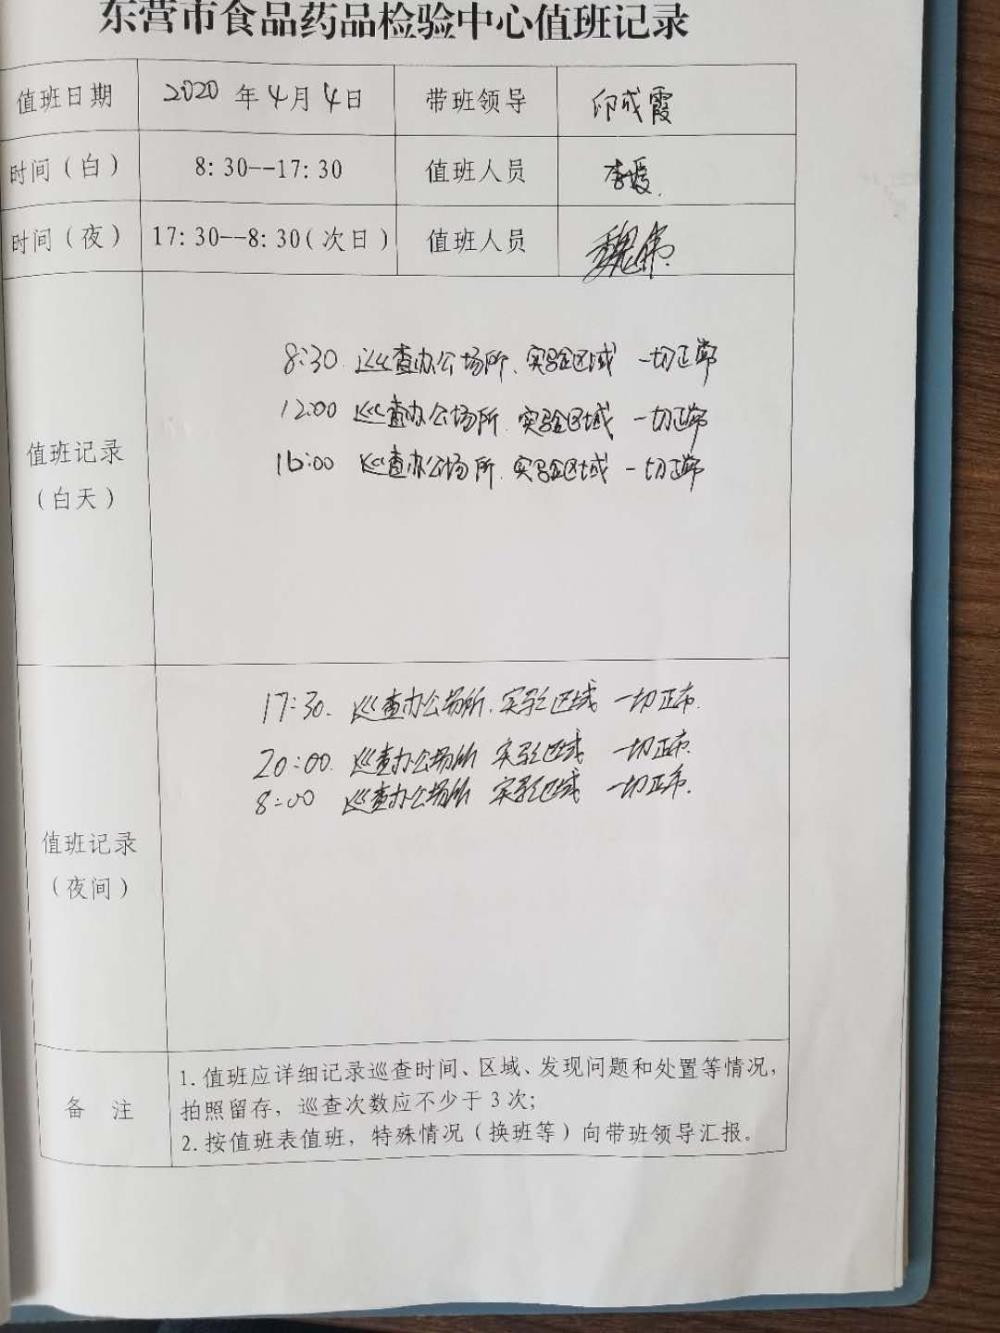 东营市食品药品检验中心值班记录
值班日期 2020 年 4 月 4 日 带班领导 印成霞
时间（白） 8:30--17:30 值班人员 李媛
时间（夜） 17:30--8:30(次日) 值班人员 魏伟
8:30 巡查办公场所、实验区域 一切正常
12:00 巡查办公场所、实验区域 一切正常
值班记录
16:00 巡查办公场所、实验区域 一切正常
（白天）
17:30. 巡查办公场所、实验区域 一切正常.
20:00. 巡查办公场所 实验区域 一切正常.
8:00 巡查办公场所 实验区域 一切正常.
值班记录
（夜间）
备 注
1. 值班应详细记录巡查时间、区域、发现问题和处置等情况，
拍照留存，巡查次数应不少于 3 次；
2. 按值班表值班，特殊情况（换班等）向带班领导汇报。